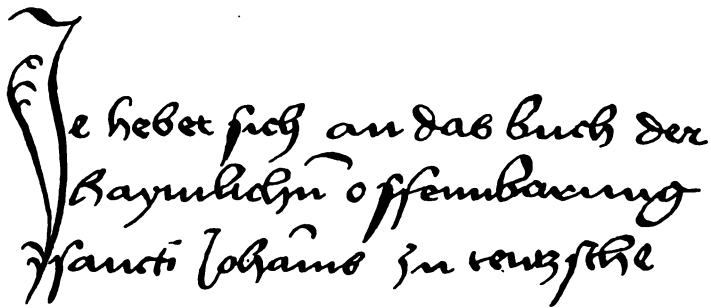 Je hebet sich an das buch der
haymlichn̄ offennbarung
sancti Johan̄is zu teutzsche